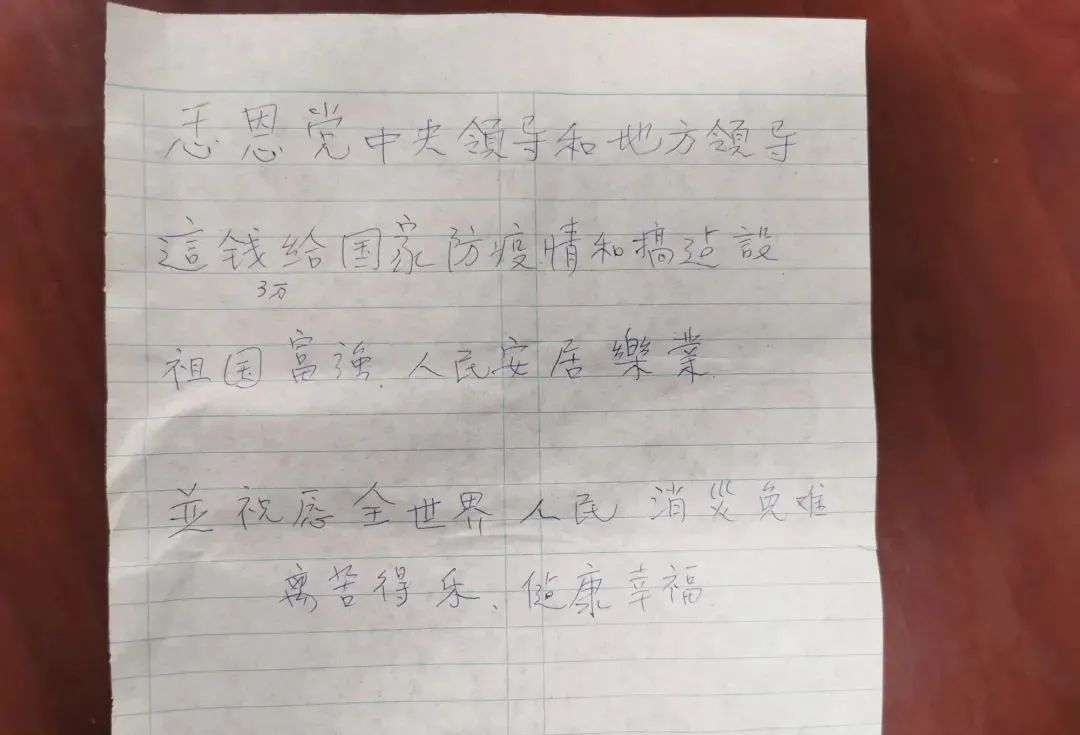 恩党中央領导和地方領导
這钱给国家防疫情和搞建設
3万
祖国富強.人民安居樂業.
並祝愿全世界人民消災免难
离苦得乐、健康幸福.